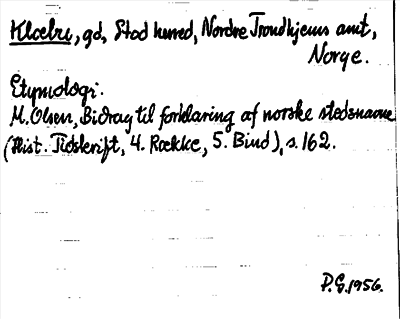 Klælre, gd, Stod herred, Nordre Trondhjems amt,
Norge.
Etymologi.
M. Olsen, Bidrag til forklaring af norske stedsnavne
(Hist. Tidskrift, 4. Række, 5. Bind), s. 162.
P.G. 1956.